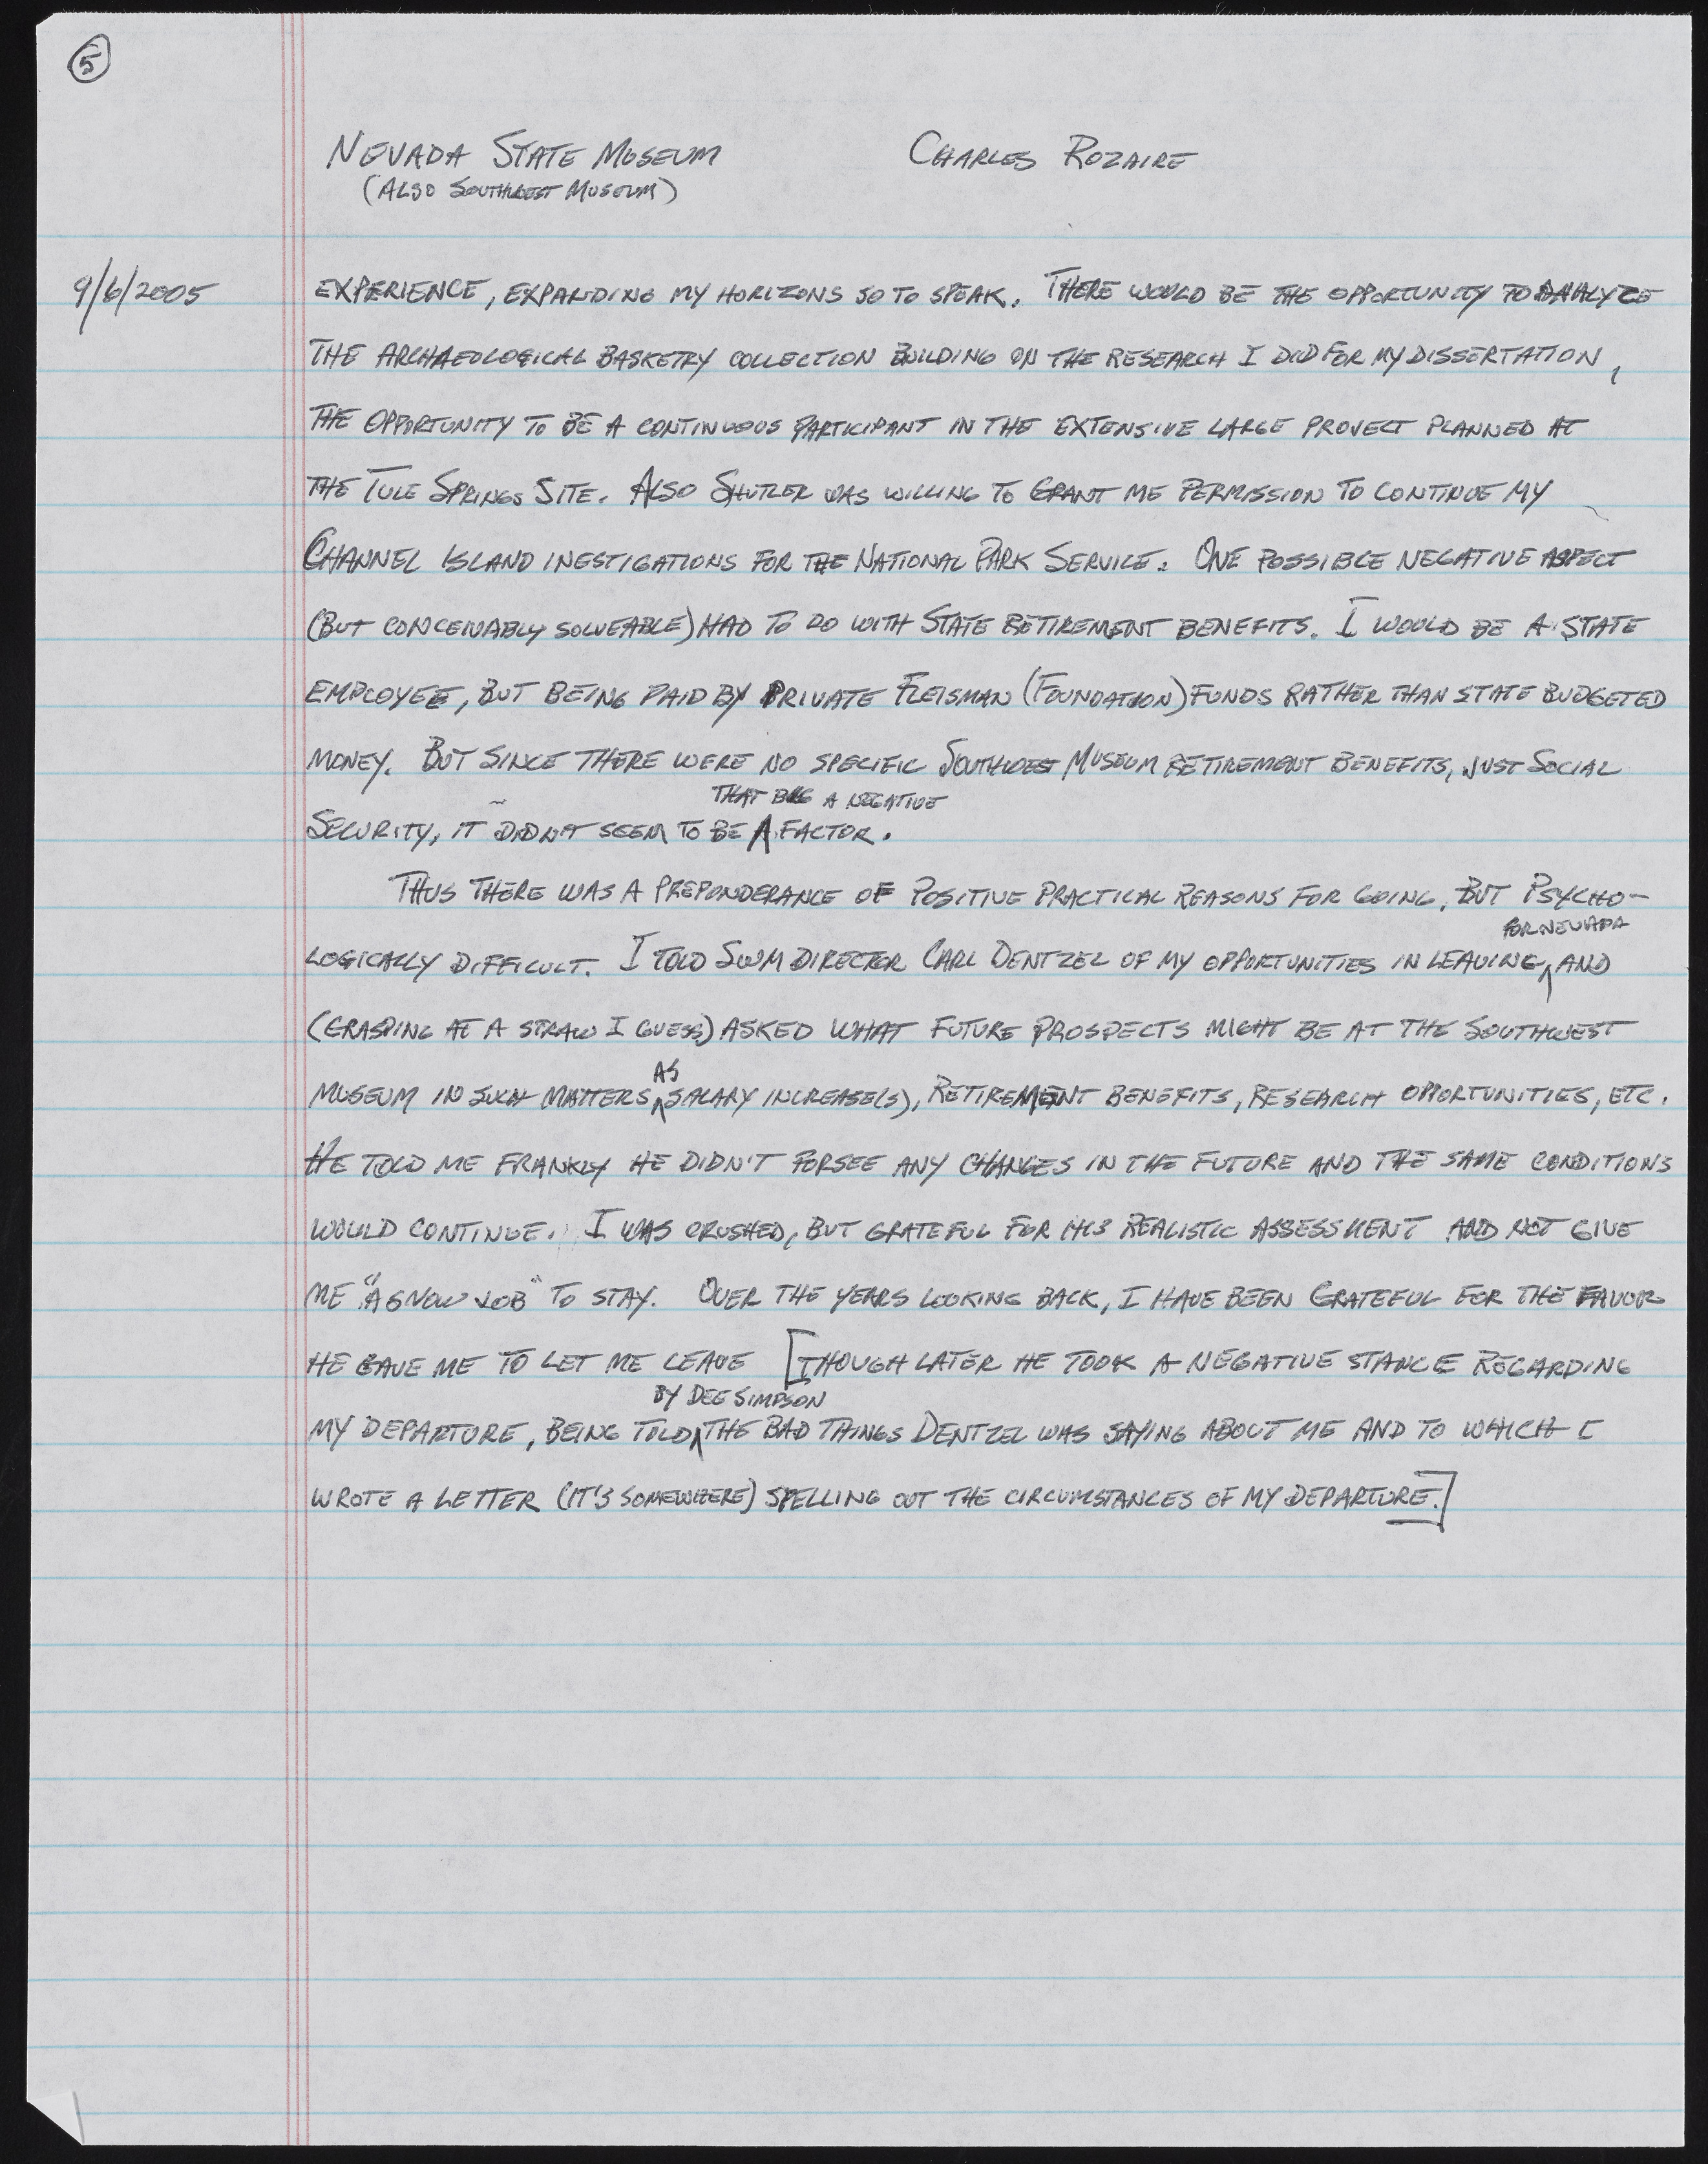 5
NEVADA STATE MUSEUM CHARLES ROZAIRE
(ALSO SOUTHWEST MUSEUM)
9/6/2005 EXPERIENCE, EXPANDING MY HORIZONS SO TO SPEAK. THERE WOULD BE THE OPPORTUNITY TO ANALYZE
THE ARCHAEOLOGICAL BASKETRY COLLECTION BUILDING ON THE RESEARCH I DID FOR MY DISSERTATION,
THE OPPORTUNITY TO BE A CONTINUOUS PARTICIPANT IN THE EXTENSIVE LARGE PROJECT PLANNED AT
THE TULE SPRINGS SITE. ALSO SHUTLER WAS WILLING TO GRANT ME PERMISSION TO CONTINUE MY
CHANNEL ISLAND INESTIGATIONS FOR THE NATIONAL PARK SERVICE. ONE POSSIBLE NEGATIVE ASPECT
(BUT CONCEIVABLY SOLVEABLE) HAD TO DO WITH STATE RETIREMENT BENEFITS. I WOULD BE A STATE
EMPLOYEE, BUT BEING PAID BY PRIVATE FLEISMAN (FOUNDATION) FUNDS RATHER THAN STATE BUDGETED
MONEY. BUT SINCE THERE WERE NO SPECIFIC SOUTHWEST MUSEUM RETIREMENT BENEFITS, JUST SOCIAL
THAT BIG A NEGATIVE
SECURITY, IT DIDN'T SEEM TO BE ^ FACTOR.
THUS THERE WAS A PREPONDERANCE OF POSITIVE PRACTICAL REASONS FOR GOING, BUT PSYCHO-
FOR NEVADA
LOGICALLY DIFFICULT. I TOLD SWM DIRECTOR CARL DENTZEL OF MY OPPORTUNITIES IN LEAVING ^ AND
(GRASPING AT A STRAW I GUESS) ASKED WHAT FUTURE PROSPECTS MIGHT BE AT THE SOUTHWEST
AS
MUSEUM IN SUCH MATTERS ^ SALARY INCREASE(S), RETIREMENT BENEFITS, RESEARCH OPPORTUNITIES, ETC.
HE TOLD ME FRANKLY HE DIDN'T FORSEE ANY CHANGES IN THE FUTURE AND THE SAME CONDITIONS
WOULD CONTINUE. I WAS CRUSHED, BUT GRATEFUL FOR HIS REALISTIC ASSESSMENT AND NOT GIVE
ME "A SNOW JOB" TO STAY. OVER THE YEARS LOOKING BACK, I HAVE BEEN GRATEFUL FOR THE FAVOR
HE GAVE ME TO LET ME LEAVE [THOUGH LATER HE TOOK A NEGATIVE STANCE REGARDING
BY DEE SIMPSON
MY DEPARTURE, BEING TOLD ^ THE BAD THINGS DENTZEL WAS SAYING ABOUT ME AND TO WHICH I
WROTE A LETTER (IT'S SOMEWHERE) SPELLING OUT THE CIRCUMSTANCES OF MY DEPARTURE.]